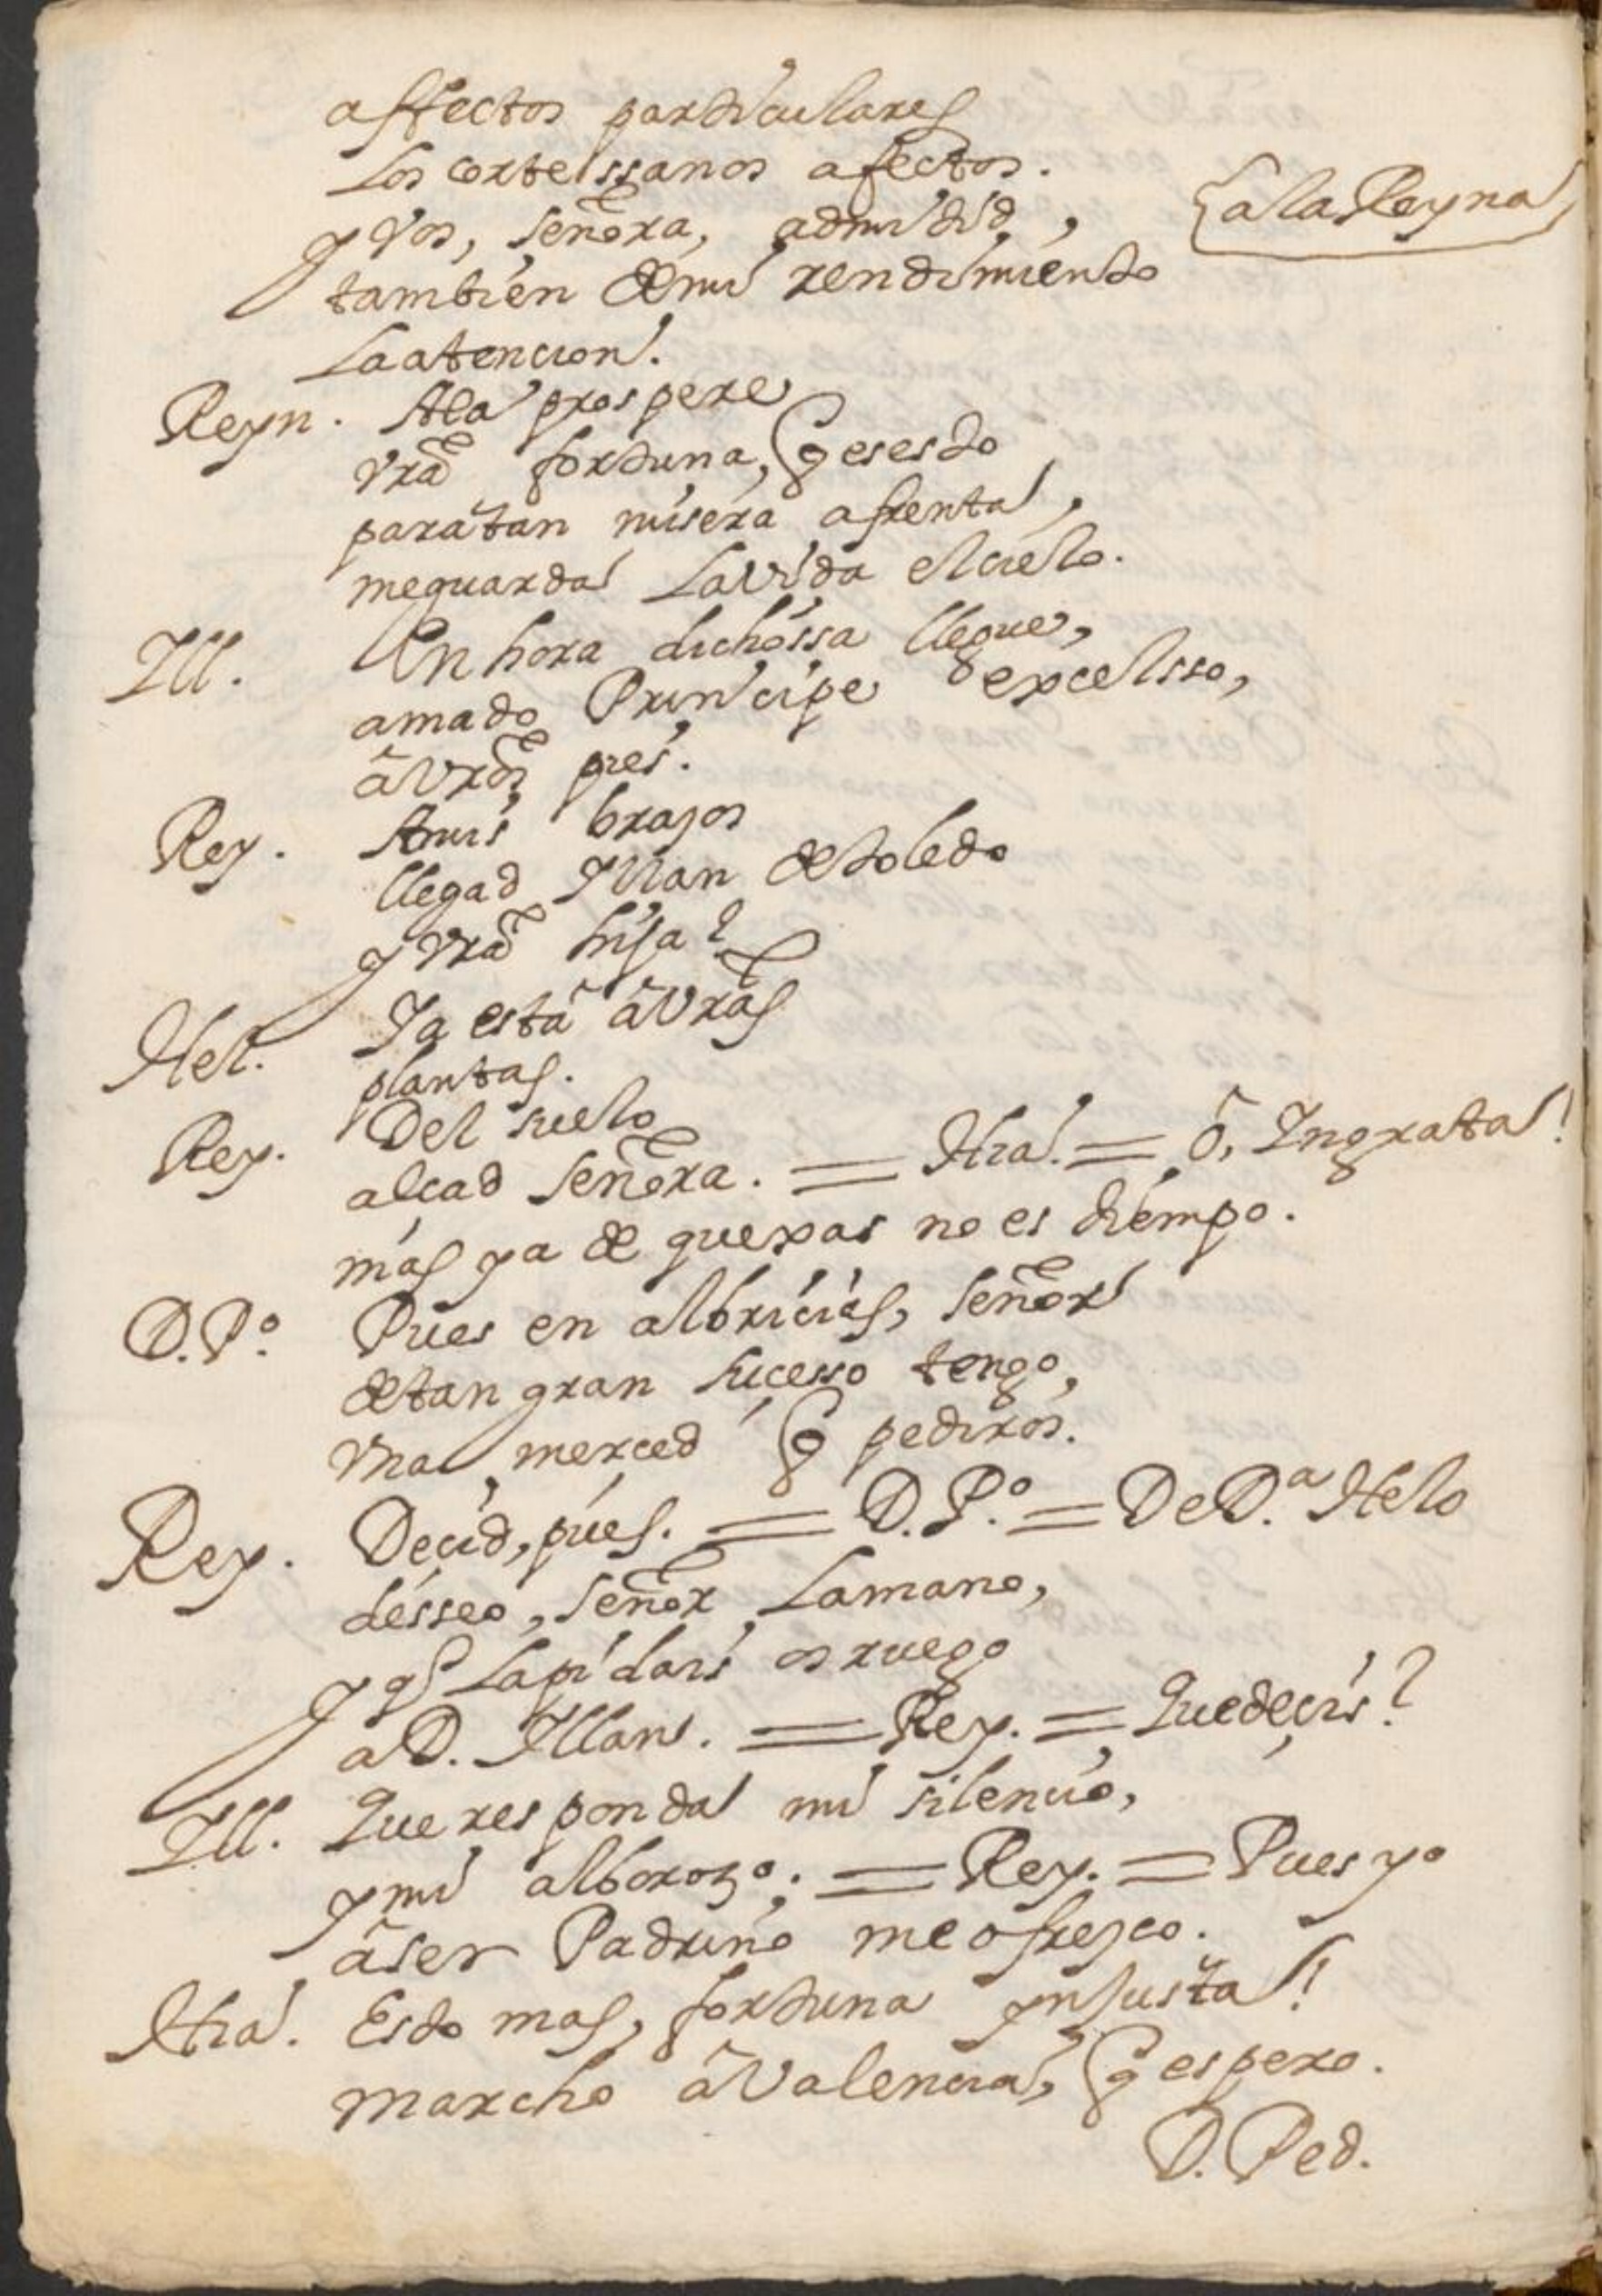 affectos particulares
Los cortessanos afectos.
y vos, señora, admitid, {a la Reyna}
tambien de mi rendimiento
La atencion.
Reyn. Ala prospere
vrã fortuna, q̃ es esto
para tan misera afrenta,
me guarda La vida el cielo.
Ill. En hora dichossa llegue,
amado Principe excelsso,
â vrõs pies.
Rey. A mis brazos
llegad Yllan de toledo
y vrã hija?
Hel. Ya està â vrãs
plantas.
Rey. Del suelo
alcad señora. = Hia. = ô, Ingrata!
mas ya de quexas no es tiempo.
D. Pº. Pues en albricias, señor
de tan gran sucesso tengo,
vna merced q̃ pediros.
Rey. Decid, pues. = D. Pº. = De D.ª Helo
desseo, señor La mano,
y q̃ La pidais os ruego
a D. Illan. = Rey. = Que deçis?
Ill. Que responda mi silencio,
y mi alborozo. = Rey. = Pues yo
â ser Padrino me ofrezco.
Hia. Esto mas, fortuna ynjusta!
marcho â Valencia, q̃ espero.
D. Ped.